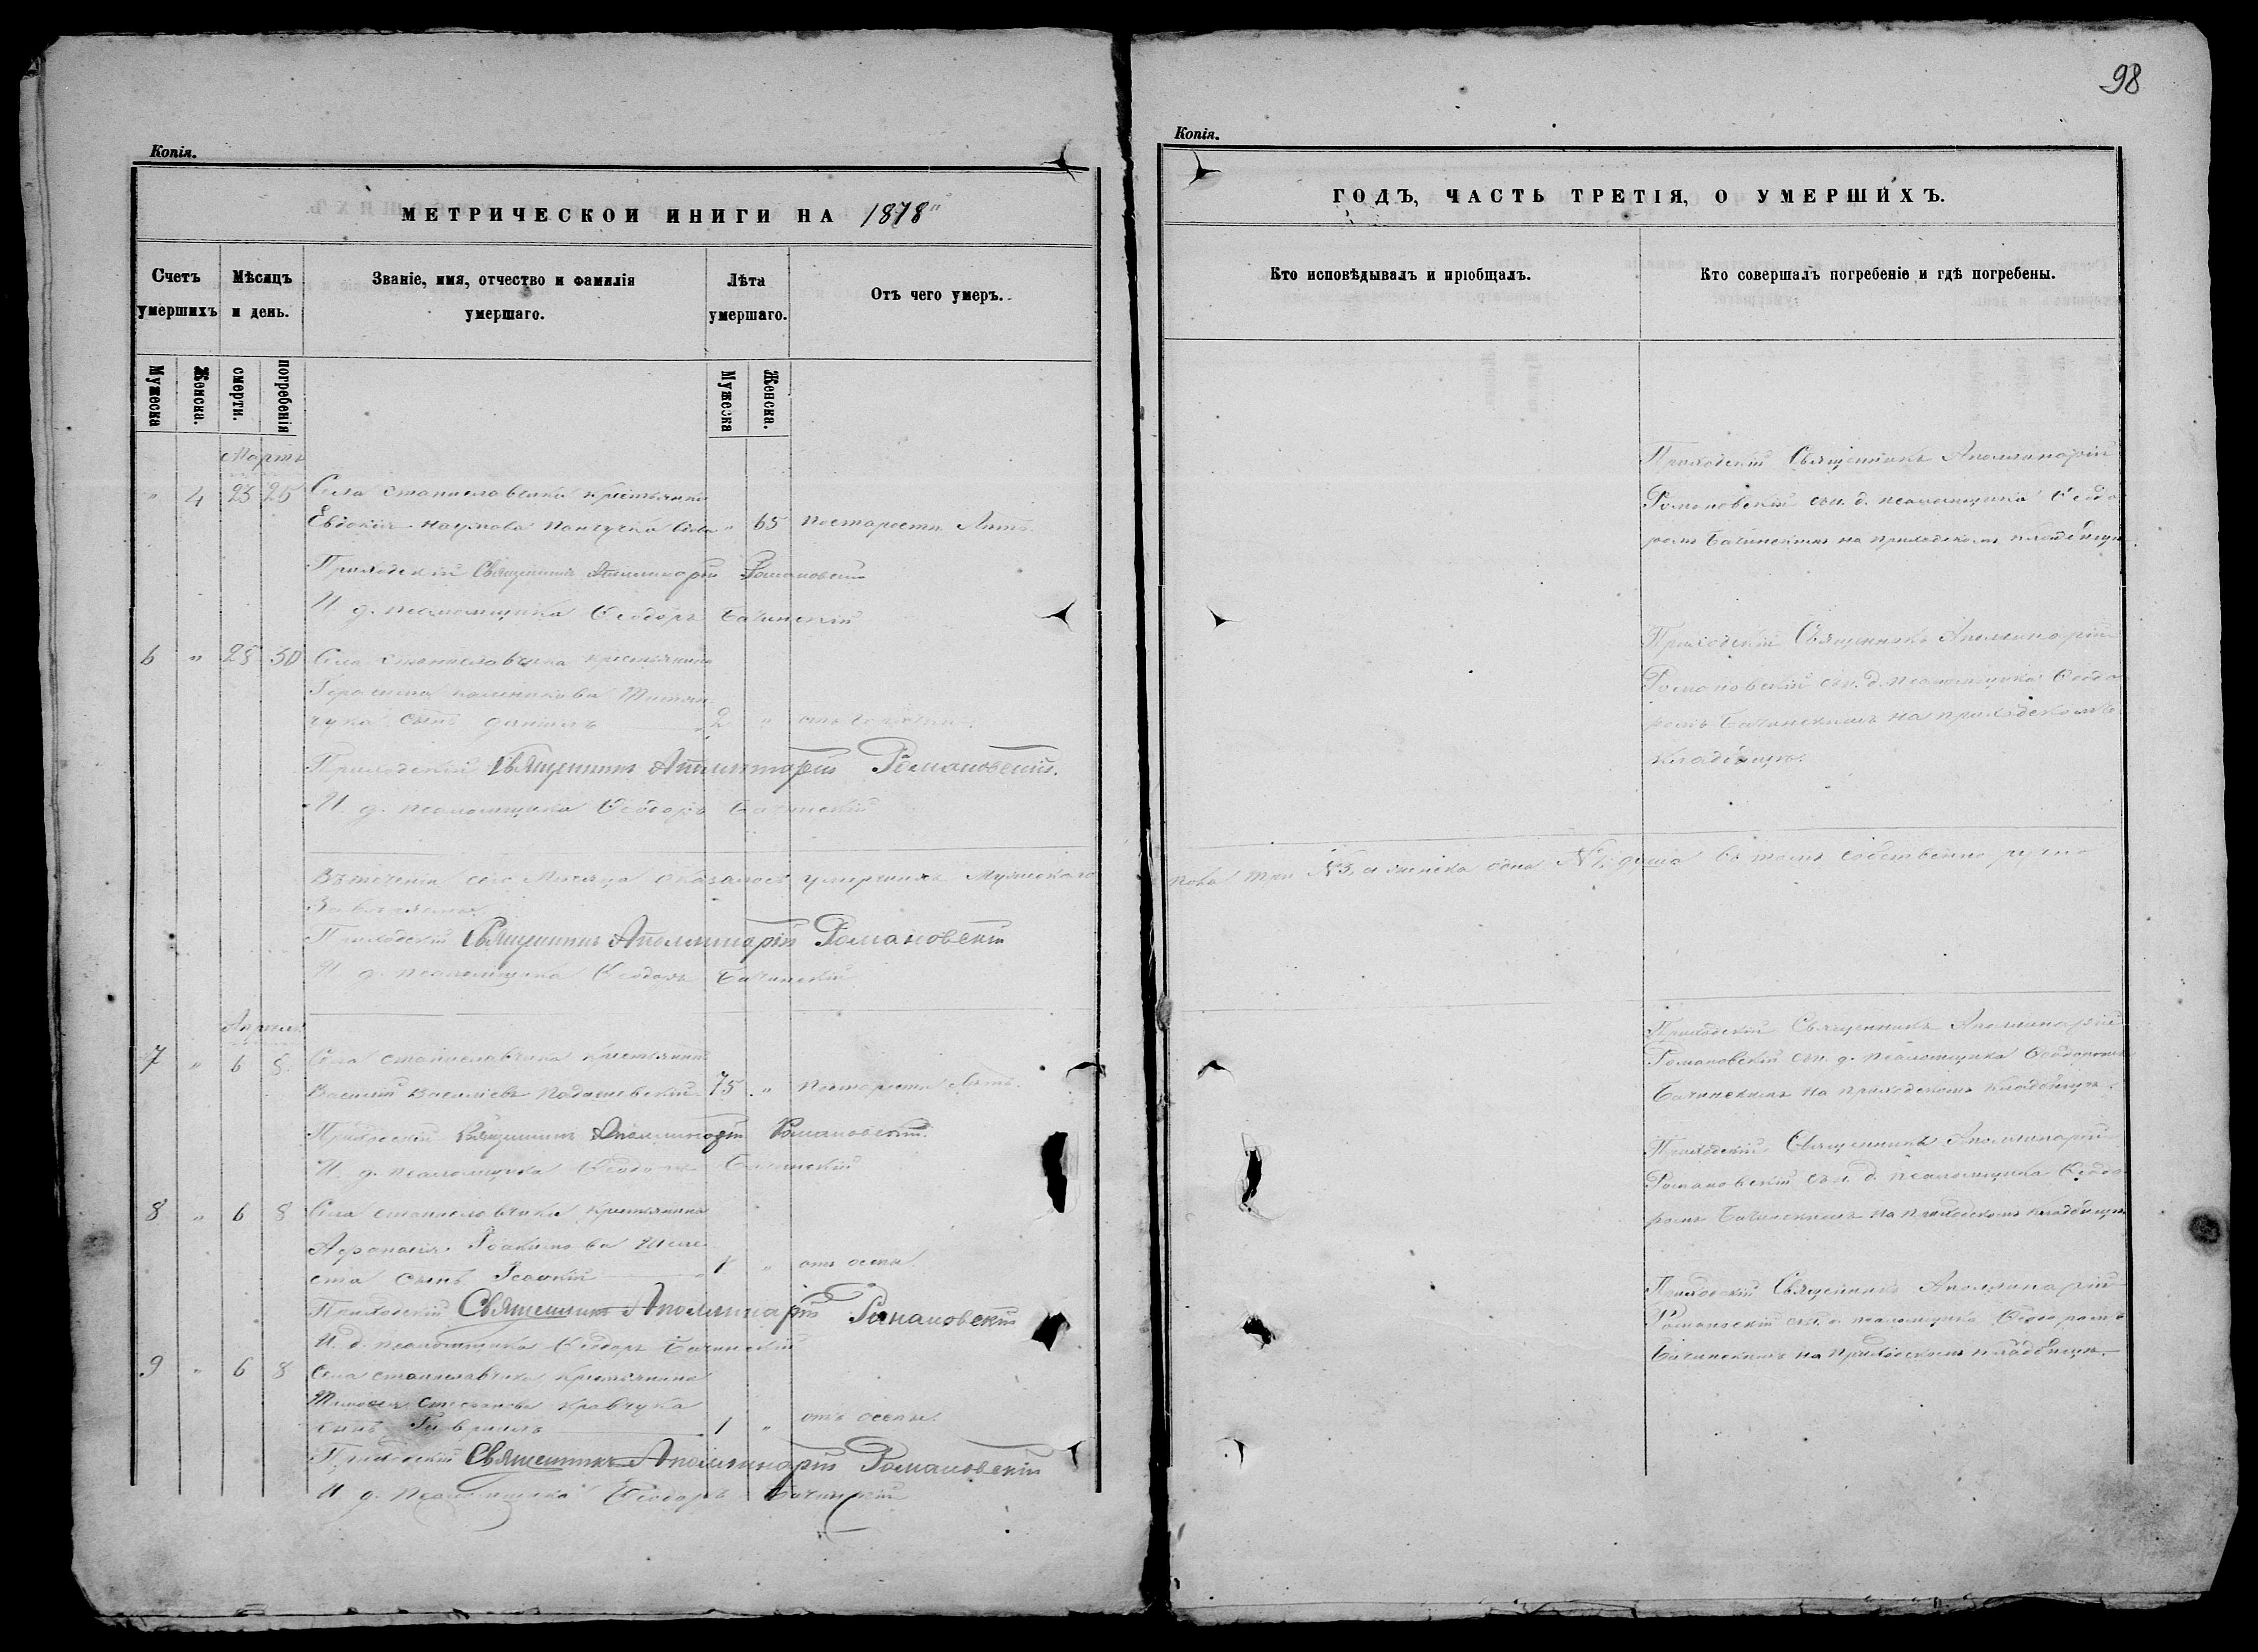 98
Копія.
МЕТРИЧЕСКОЙ КНИГИ НА 1878
Счетъ умершихъ
Мѣсяцъ и день.
Званіе, имя, отчество и фамилія умершаго.
Лѣта умершаго.
Отъ чего умеръ.
Мужеска
Женска.
смерти.
погребенія
Мужеска
Женска.
Мартъ
" 4 23 25 Села Станиславчика крестьянка
Евдокія Наумова вдова " 65 по старости лѣтъ.
Приходскій Священникъ Аполлинарій Романовскій
И. д. псаломщика Ѳеодоръ Бачинскій
6 " 28 30 Села Станиславчика крестьянина
Герасима
чука сынъ Даніилъ 2 "
Приходскій Священникъ Аполлинарій Романовскій.
И. д. псаломщика Ѳеодоръ Бачинскій
Въ теченіи сего Мѣсяца оказалось умершихъ Мужескаго
Приходскій Священникъ Аполлинарій Романовскій
И. д. псаломщика Ѳеодоръ Бачинскій
Апрѣль
7 " 6 8 Села Станиславчика крестьянинъ
Василій Васильевъ 75 " по старости лѣтъ.
Приходскій Священникъ Аполлинарій Романовскій.
И. д. псаломщика Ѳеодоръ Бачинскій
8 " 6 8 Села Станиславчика крестьянина
Афанасія Іоакимова
ста сынъ " отъ оспы
Приходскій Священникъ Аполлинарій Романовскій
И. д. псаломщика Ѳеодоръ Бачинскій
9 " 6 8 Села Станиславчика крестьянина
Тимоѳея Стефанова Кравчука
сынъ Гавріилъ 1 " отъ оспы.
Приходскій Священникъ Аполлинарій Романовскій
И. д. псаломщика Ѳеодоръ Бачинскій
Копія.
ГОДЪ, ЧАСТЬ ТРЕТІЯ, О УМЕРШИХЪ.
Кто исповѣдывалъ и пріобщалъ.
Кто совершалъ погребеніе и гдѣ погребены.
Приходскій Священникъ Аполлинарій
Романовскій съ и. д. псаломщика Ѳеодо
ромъ Бачинскимъ на приходскомъ кладбищѣ.
Приходскій Священникъ Аполлинарій
Романовскій съ и. д. псаломщика Ѳеодо
ромъ Бачинскимъ на приходскомъ
кладбищѣ.
пола три №3, а женска одна №1, душа въ томъ собственно ручно
Приходскій Священникъ Аполлинарій
Романовскій съ и. д. псаломщика Ѳеодоромъ
Бачинскимъ на приходскомъ кладбищѣ.
Приходскій Священникъ Аполлинарій
Романовскій съ и. д. псаломщика Ѳеодо
ромъ Бачинскимъ на приходскомъ кладбищѣ
Приходскій Священникъ Аполлинарій
Романовскій съ и. д. псаломщика Ѳеодоромъ
Бачинскимъ на приходскомъ кладбищѣ.